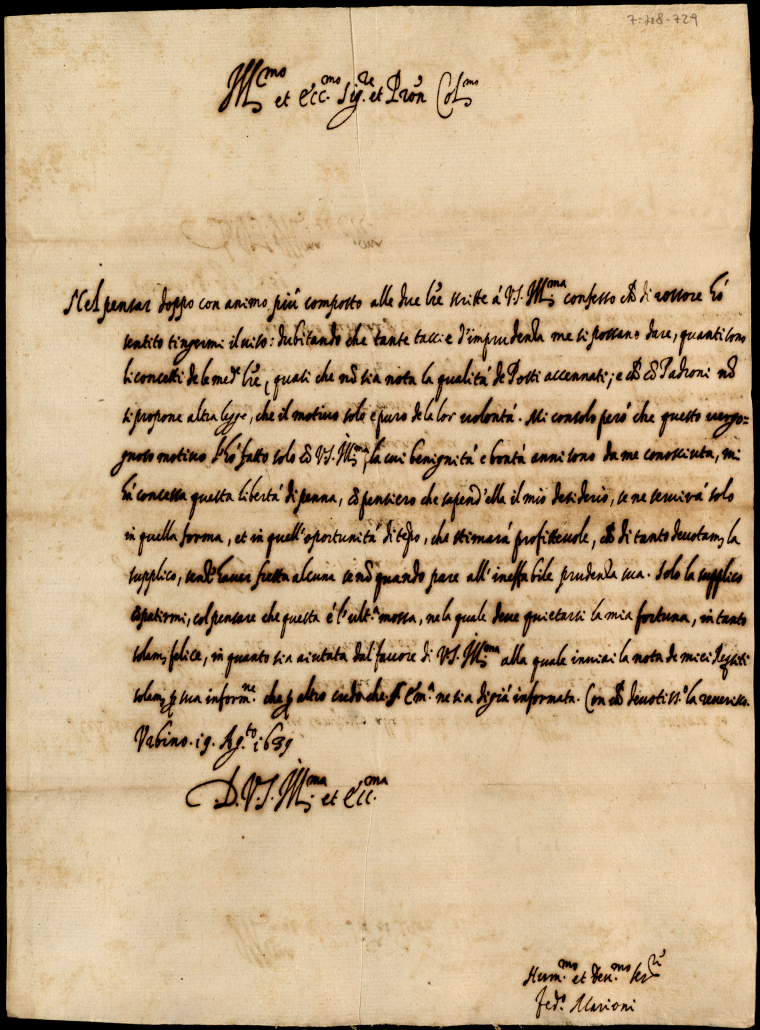 7-728-729
Ill.mo et Ecc.mo Sig.re et Pron Col.mo
Nel pensar doppo con animo più composto alle due lre scritte á V.S. Ill.ma confesso ch di rossore hó
sentito tingermi il viso: dubitando che tante taccie d'imprudenza me si possano dare, quanti sono
li concetti de le med.e lre, quasi che nō sia nota la qualitá de Posti accennati; e ch cō Padroni nō
si propone altra legge, che il motivo solo e puro de la lor volontá. Mi consolo peró che questo vergo=
gnoso motivo l'hó fatto solo cō V.S. Ill.ma, la cui benignitá e bontá anni sono da me conosciuta, mi
há concessa questa libertá di penna, cō pensiero che sapend'ella il mio desiderio, se ne servirá solo
in quella forma, et in quell'oportunitá di tēpo, che stimará profittevole, ch di tanto devotam.e la
supplico, senz'haver fretta alcuna se nō quando pare all'ineffabile prudenza sua. Solo la supplico
cōpatirmi, col pensare che questa é l'ult.a mossa, ne la quale deve quietarsi la mia fortuna, in tanto
solam.e felice, in quanto sia aiutata dal favore di V.S. Ill.ma alla quale inviai la nota de miei
solam.e p sua inform.ne che p altro credo che S. Em.a ne sia di giá informata. Con ch devotiss.e la reverisco.
Urbino. 19. Ag.to 1639
D. V.S. Ill.ma et Ecc.ma
Hum.mo et Dev.mo Ser.re
Fed.o Marioni